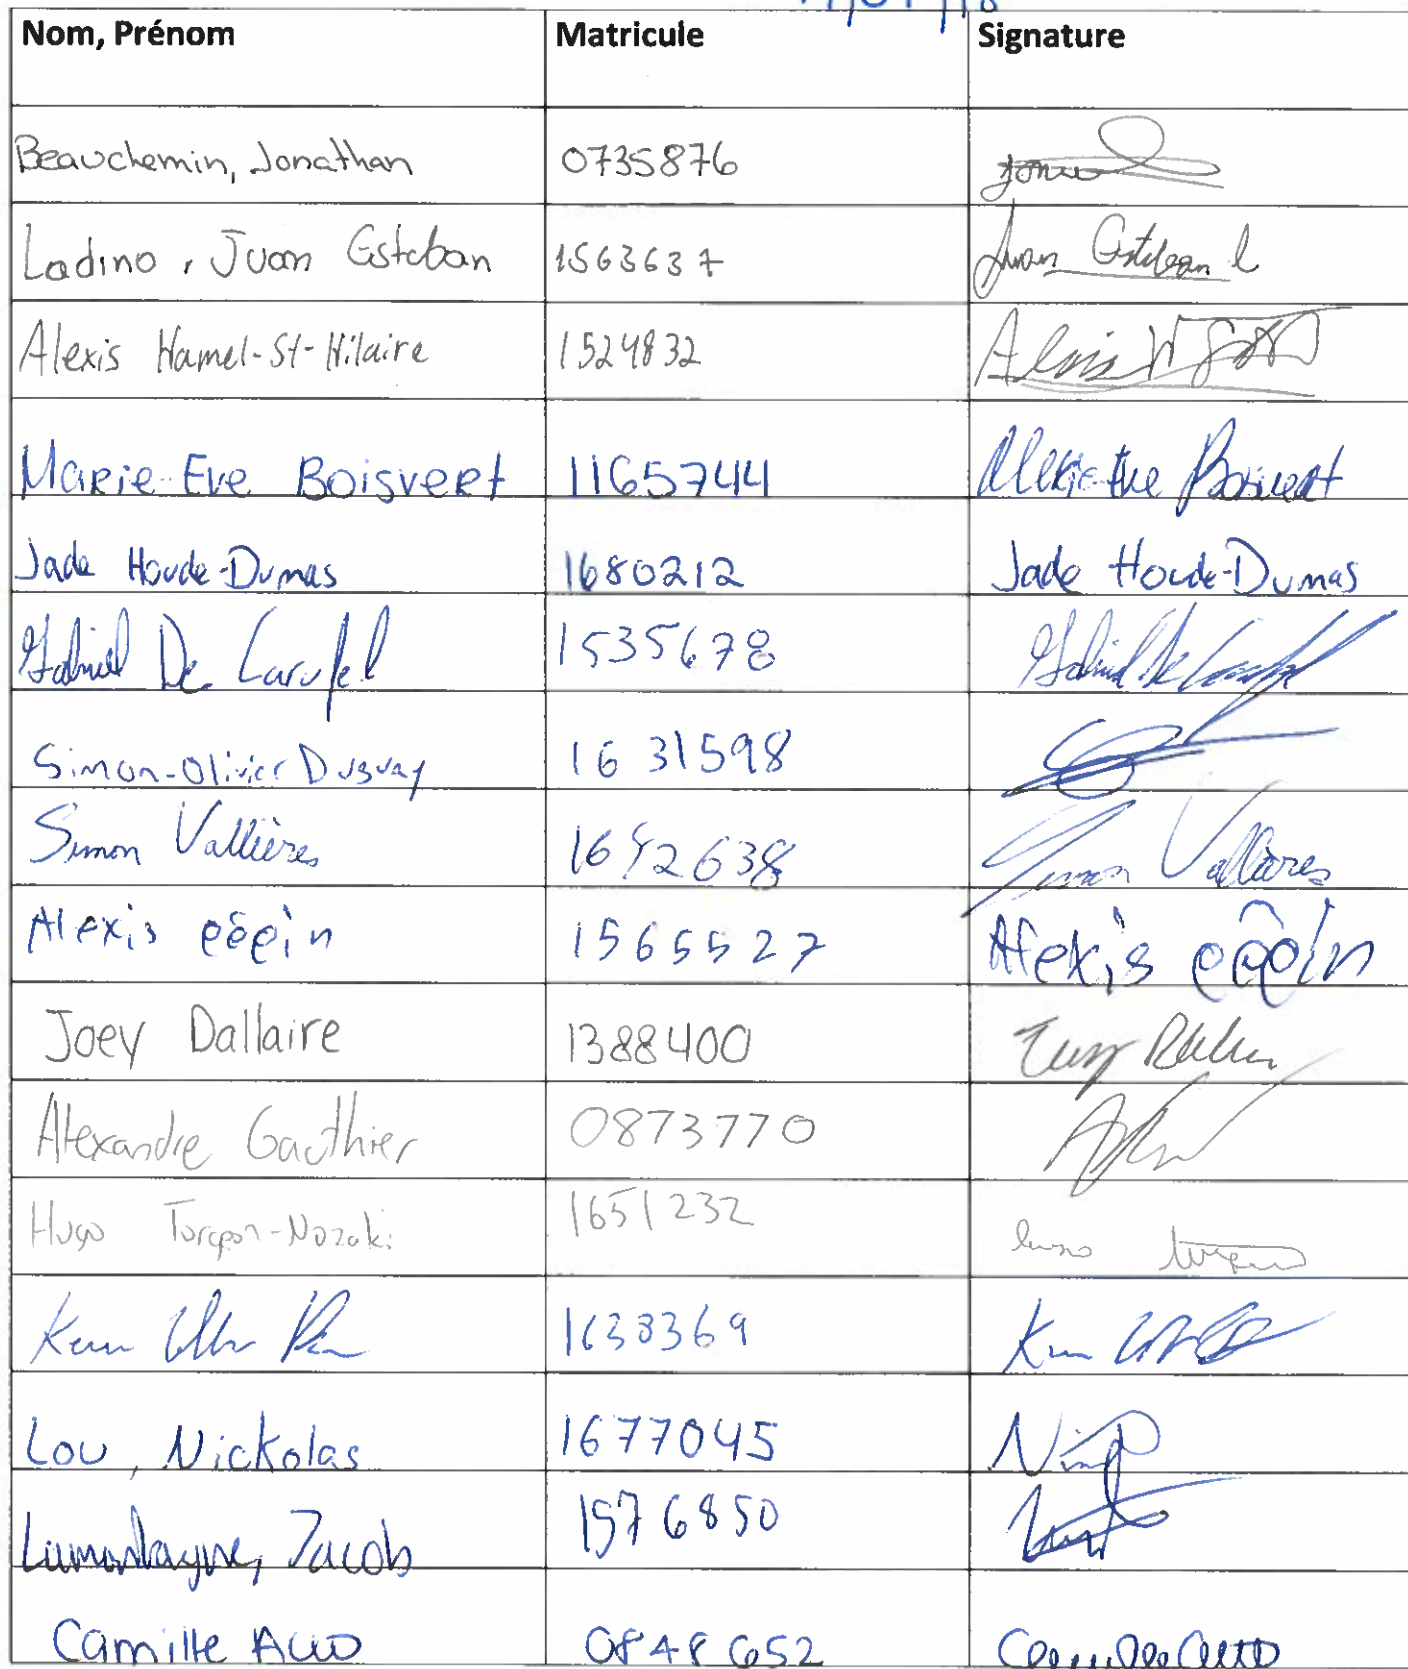 Nom, Prénom Matricule Signature
Beauchemin, Jonathan 0735876
Ladino, Juan Esteban 1563637 Juan Esteban L
Alexis Hamel-St-Hilaire 1524832 Alexis
Marie-Eve Boisvert 1165744 Marie-Eve Boisvert
Jade Houde-Dumas 1680212 Jade Houde-Dumas
Gabriel De Carufel 1535678 Gabriel De Carufel
Simon-Olivier Duguay 1631598
Simon Vallières 1642638 Simon Vallières
Alexis Pépin 1565527 Alexis Pépin
Joey Dallaire 1388400
Alexandre Gauthier 0873770
Hugo Turgeon-Nozaki 1651232
1638369
Lou, Nickolas 1677045
Lamontagne, Jacob 1576850
Camille 0848652 Camille